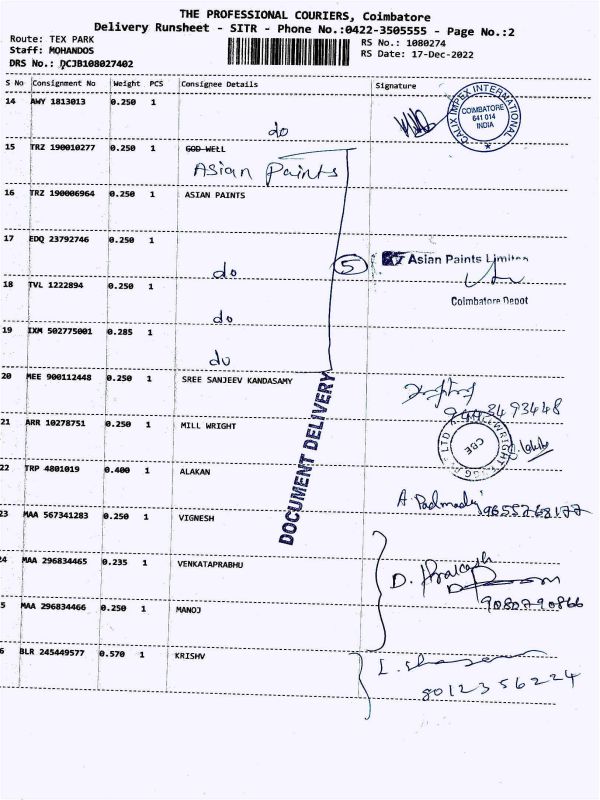 THE PROFESSIONAL COURIERS, Coimbatore
Delivery Runsheet - SITR - Phone No.:0422-3505555 - Page No.:2
Route: TEX PARK
Staff: MOHANDOS
DRS No.: DCJB108027402
RS No.: 1080274
RS Date: 17-Dec-2022
S No Consignment No Weight PCS Consignee Details Signature
14 AWY 1813013 0.250 1
do
CALIX IMPEX INTERNATIONAL
COIMBATORE
641 014
INDIA
15 TRZ 190010277 0.250 1 GOD WELL
Asian Paints
16 TRZ 190006964 0.250 1 ASIAN PAINTS
17 EDQ 23792746 0.250 1
do
5
Asian Paints Limited
Coimbatore Depot
18 TVL 1222894 0.250 1
do
19 IXM 502775001 0.285 1
do
20 MEE 900112448 0.250 1 SREE SANJEEV KANDASAMY
9443493448
DOCUMENT DELIVERY
21 ARR 10278751 0.250 1 MILL WRIGHT
CBE
22 TRP 4801019 0.400 1 ALAKAN
A. Padmady
9655768177
23 MAA 567341283 0.250 1 VIGNESH
24 MAA 296834465 0.235 1 VENKATAPRABHU
D. Prakash
9080790866
5 MAA 296834466 0.250 1 MANOJ
6 BLR 245449577 0.570 1 KRISHV
8012356224